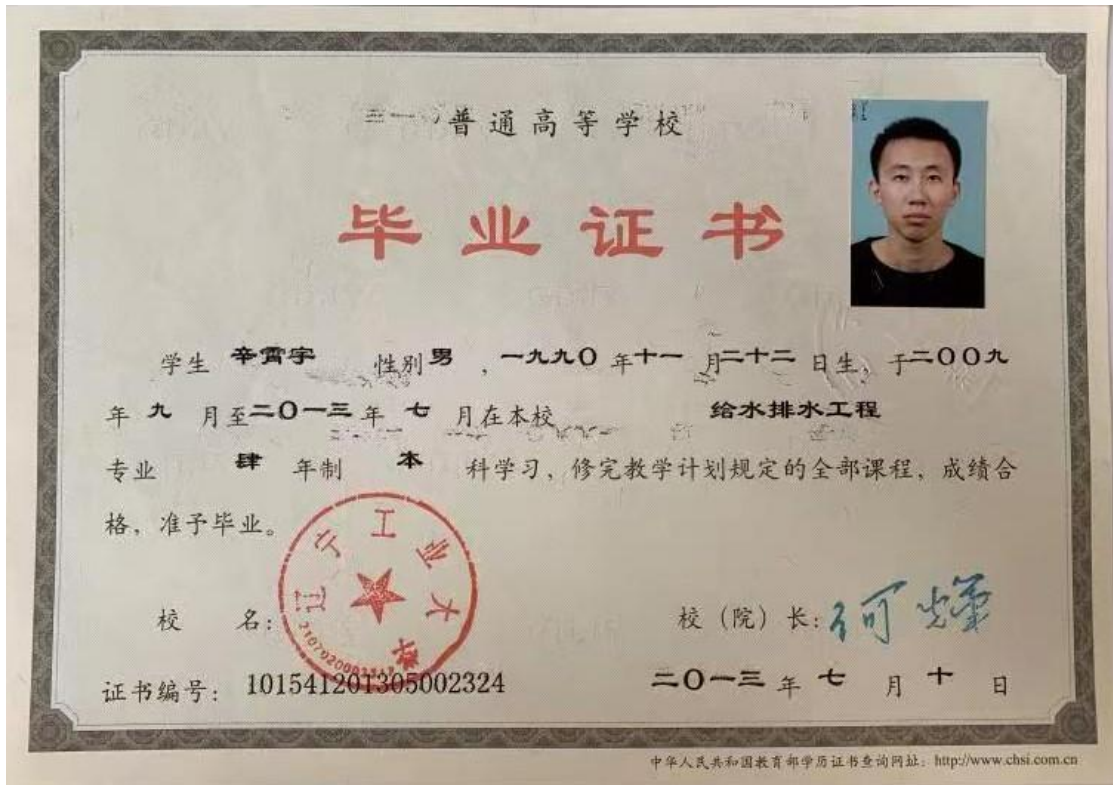 普通高等学校
毕业证书
学生 辛霄宇 性别 男 ，一九九〇 年 十一 月 二十二 日生，于 二〇〇九
年 九 月至 二〇一三 年 七 月在本校 给水排水工程
专业 肆 年制 本 科学习，修完教学计划规定的全部课程，成绩合
格，准予毕业。
辽宁工业大学
校 名： 校（院）长：何
证书编号： 101541201305002324 二〇一三 年 七 月 十 日
中华人民共和国教育部学历证书查询网址：http://www.chsi.com.cn